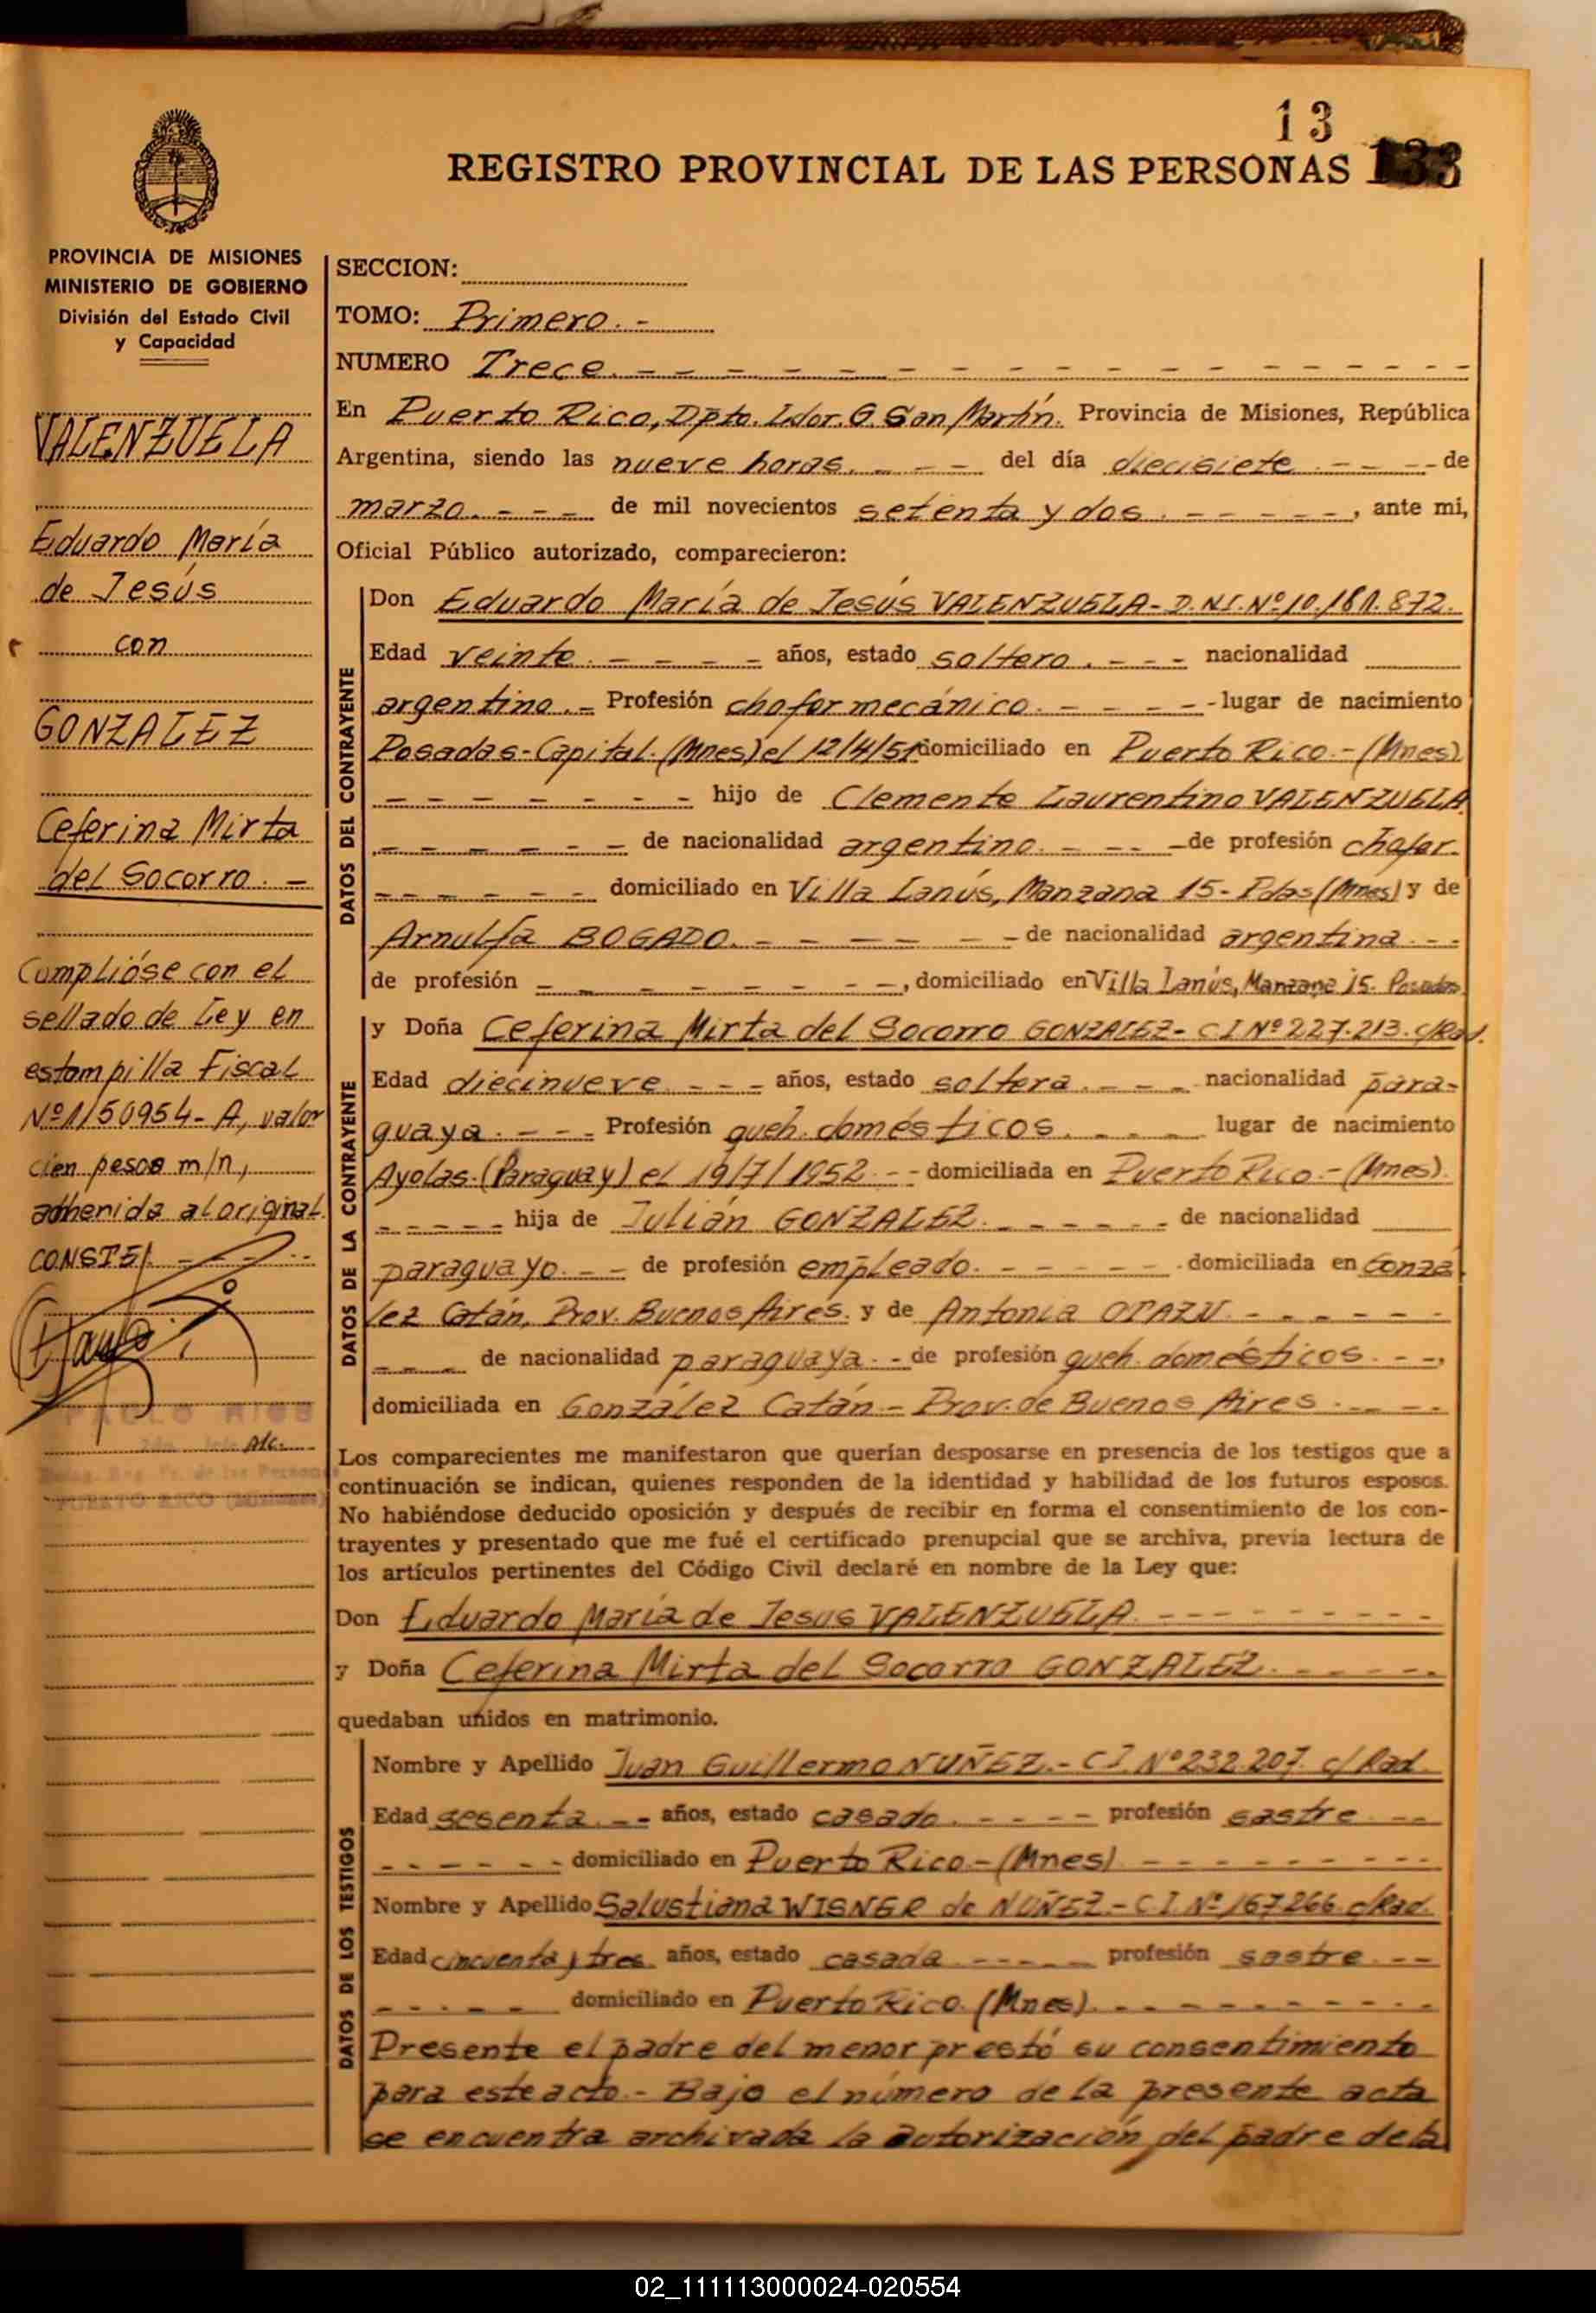 13
REGISTRO PROVINCIAL DE LAS PERSONAS 133
PROVINCIA DE MISIONES
MINISTERIO DE GOBIERNO
División del Estado Civil
y Capacidad
VALENZUELA
Eduardo María
de Jesús
con
GONZALEZ
Ceferina Mirta
del Socorro. -
Cumplióse con el
sellado de Ley en
estampilla Fiscal
valor
cien pesos m/n,
adherida al original.
CONSTE/. - - - -
PABLO RIOS
Alc.
PUERTO RICO (Misiones)
SECCION:
TOMO: Primero. -
NUMERO Trece. - - - - - - - - - - - - - - - -
En Puerto Rico, Dpto. Ldor. G. San Martín. Provincia de Misiones, República
Argentina, siendo las nueve horas. - - - del día diecisiete. - - - de
marzo. - - - de mil novecientos setenta y dos. - - - - -, ante mi,
Oficial Público autorizado, comparecieron:
DATOS DEL CONTRAYENTE
Don Eduardo María de Jesús VALENZUELA - D.N.I. Nº 10.181.872.
Edad veinte. - - - - años, estado soltero. - - - nacionalidad
argentino. - Profesión chofer mecánico. - - - - lugar de nacimiento
Posadas-Capital. (Mnes) el 12/4/51 domiciliado en Puerto Rico. - (Mnes)
- - - - - - - hijo de Clemente Laurentino VALENZUELA
- - - - - - de nacionalidad argentino. - - - - de profesión chofer.
- - - - - - domiciliado en Villa Lanús, Manzana 15 - Pdas (Mnes) y de
Arnulfa BOGADO. - - - - - - de nacionalidad argentina. - -
de profesión - - - - - - - -, domiciliado en Villa Lanús, Manzana 15. Posadas
DATOS DE LA CONTRAYENTE
y Doña Ceferina Mirta del Socorro GONZALEZ - C I Nº 227.213. c/Rad.
Edad diecinueve. - - - años, estado soltera. - - - nacionalidad para-
guaya. - - - Profesión queh. domésticos. - - - lugar de nacimiento
Ayolas. (Paraguay) el 19/7/1952 - - domiciliada en Puerto Rico. - (Mnes).
- - - - - hija de Julián GONZALEZ. - - - - - - de nacionalidad
paraguayo. - - de profesión empleado. - - - - - - domiciliada en Gonzá
lez Catán, Prov. Buenos Aires. y de Antonia OTAZU. - - - - - -
- - - de nacionalidad paraguaya. - de profesión queh. domésticos. - -,
domiciliada en González Catán - Prov. de Buenos Aires. - - -
Los comparecientes me manifestaron que querían desposarse en presencia de los testigos que a
continuación se indican, quienes responden de la identidad y habilidad de los futuros esposos.
No habiéndose deducido oposición y después de recibir en forma el consentimiento de los con-
trayentes y presentado que me fué el certificado prenupcial que se archiva, previa lectura de
los artículos pertinentes del Código Civil declaré en nombre de la Ley que:
Don Eduardo María de Jesus VALENZUELA. - - - - - - - - -
y Doña Ceferina Mirta del Socorro GONZALEZ. - - - - -
quedaban unidos en matrimonio.
DATOS DE LOS TESTIGOS
Nombre y Apellido Juan Guillermo NUÑEZ. - C I. Nº 232.207. c/ Rad.
Edad sesenta. - - años, estado casado. - - - - profesión sastre - -
- - - - - - domiciliado en Puerto Rico - (Mnes) - - - - - - - -
Nombre y Apellido Salustiana WISNER de NUÑEZ - C.I. Nº 167.266. c/Rad.
Edad cincuenta y tres años, estado casada - - - - - profesión sastre - -
- - - - - domiciliado en Puerto Rico. (Mnes). - - - - - - - - -
Presente el padre del menor prestó su consentimiento
para este acto. - Bajo el número de la presente acta
se encuentra archivada la autorización del padre de la
02_111113000024-020554